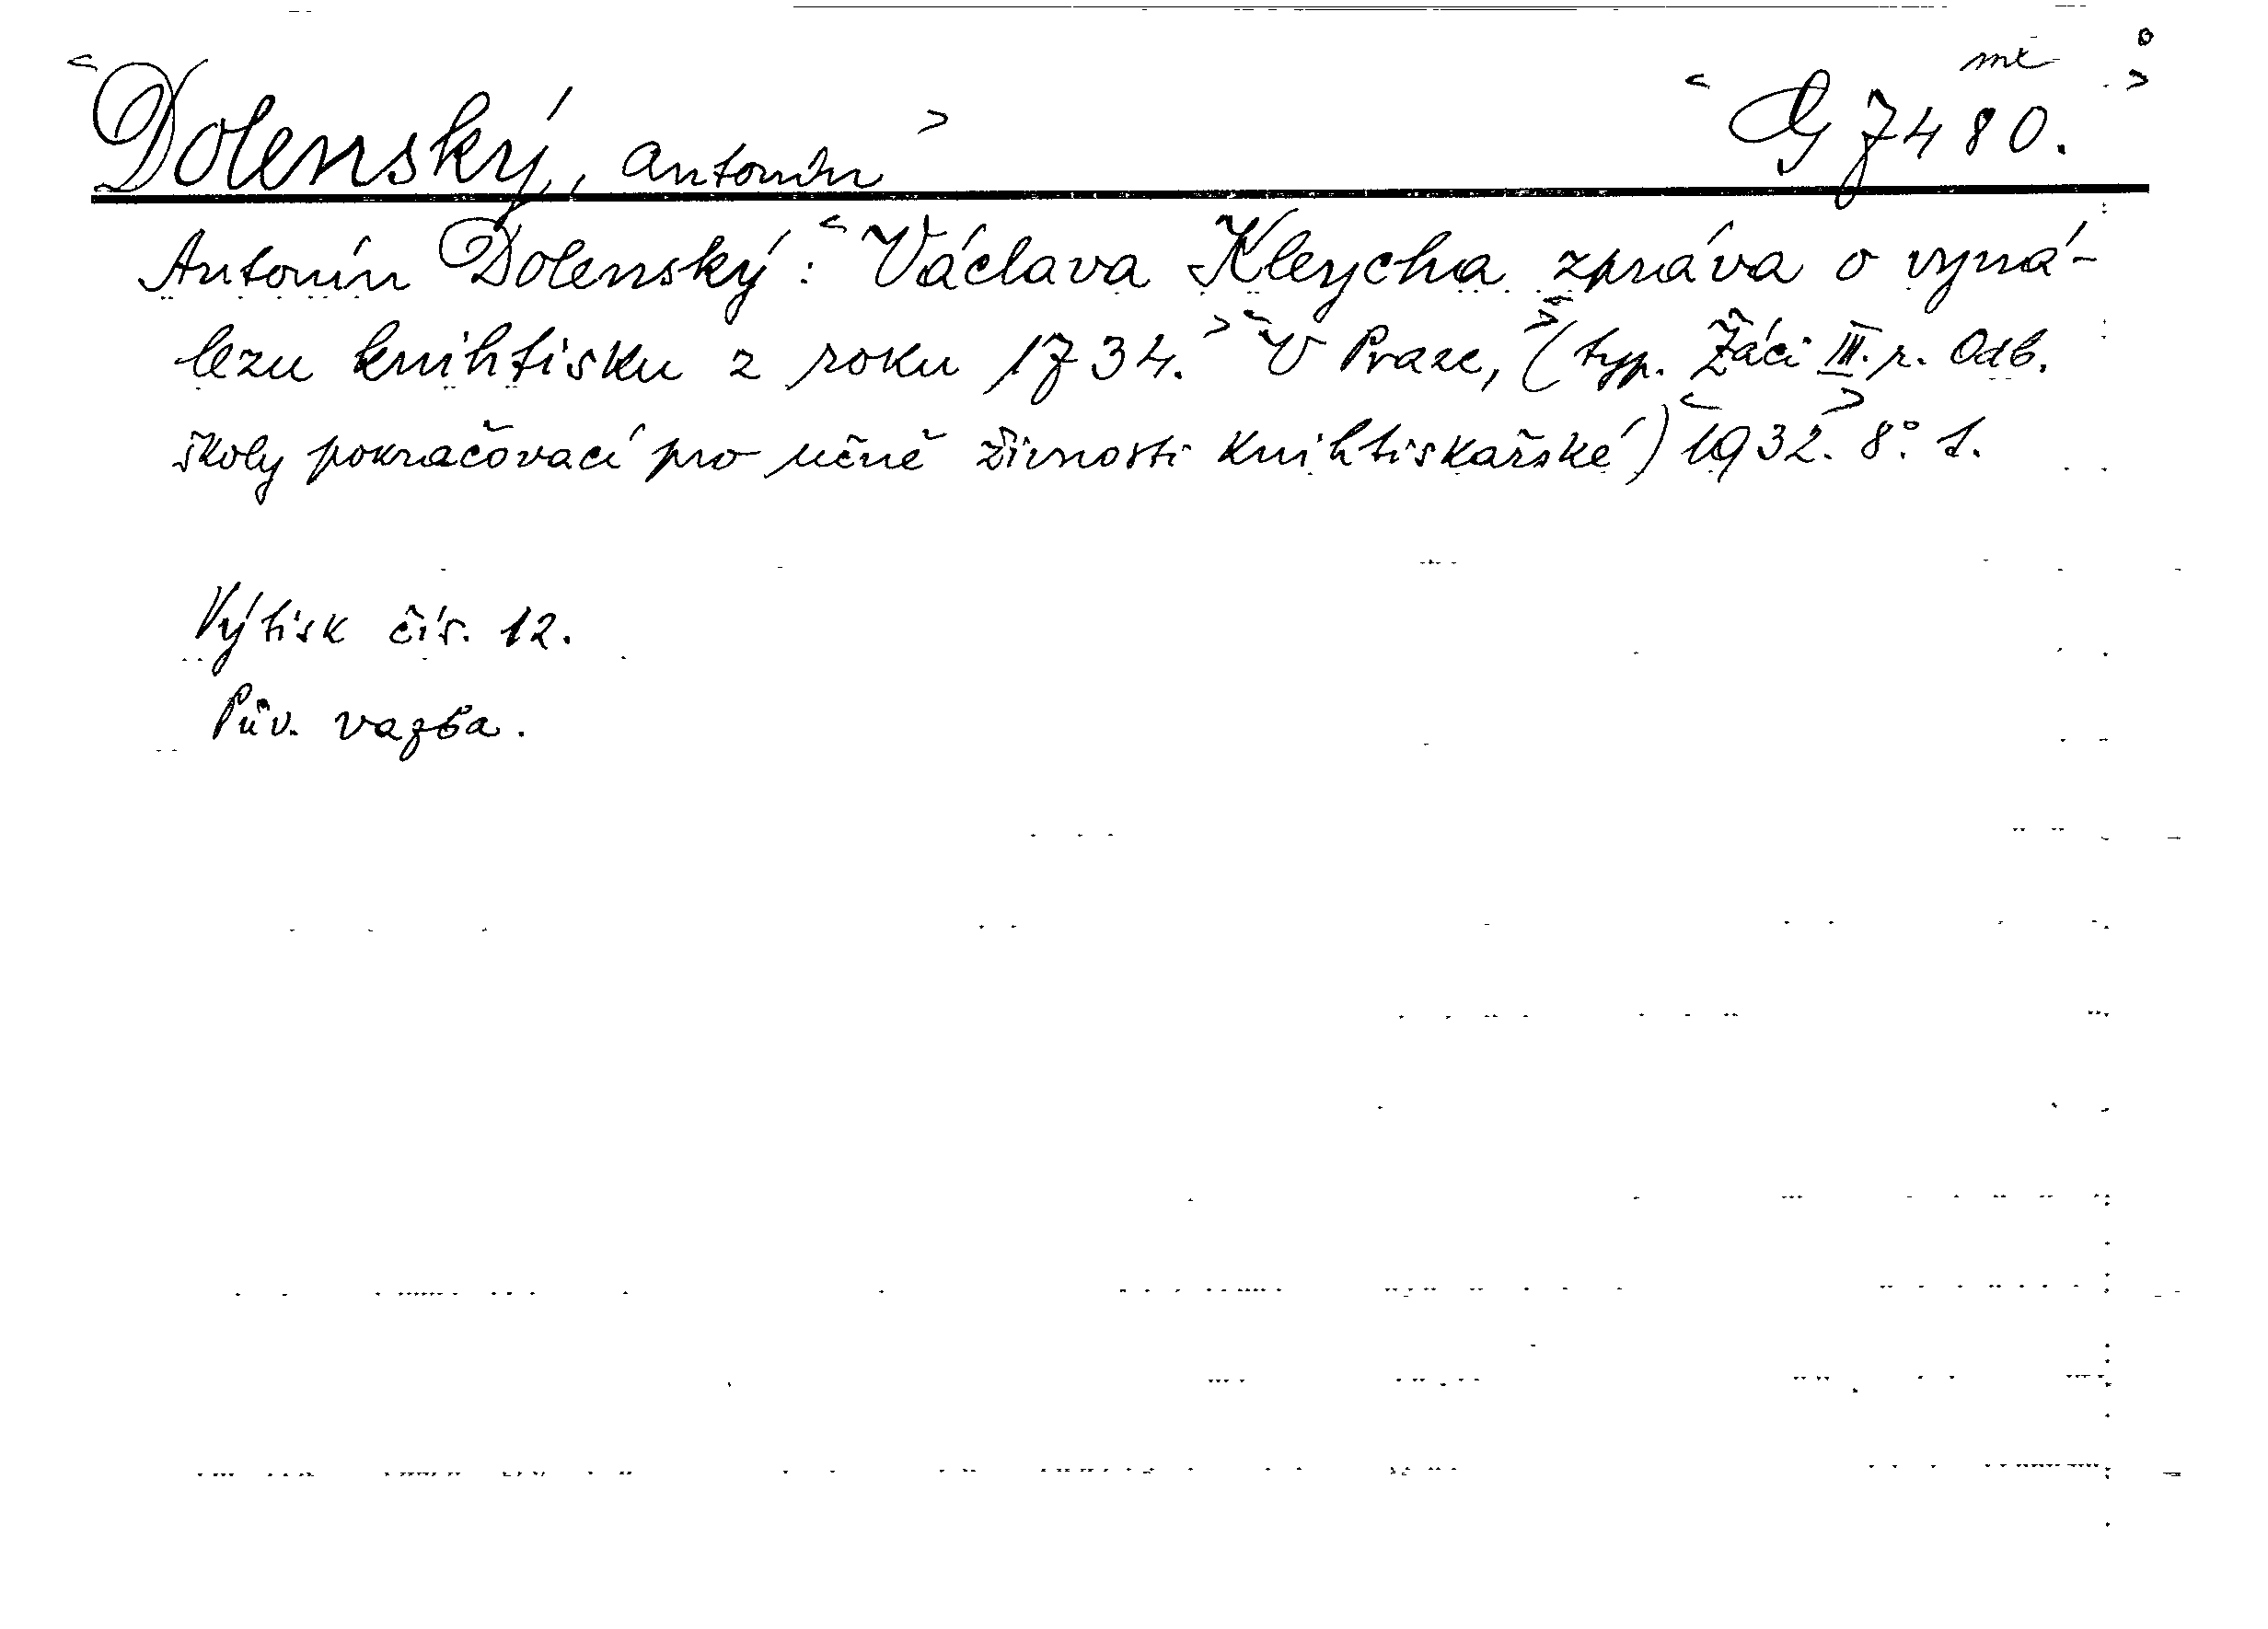 <Dolenský, Antonín> <G 7480.>
Antonín Dolenský: <Václava Kleycha zpráva o vyná-
lezu knihtisku z roku 1734.> <V Praze,> (typ. Žáci III. r. Odb.
školy pokračovací pro učně živnosti knihtiskařské) <1932.> 8° 1.
Výtisk čís. 12.
Pův. vazba.